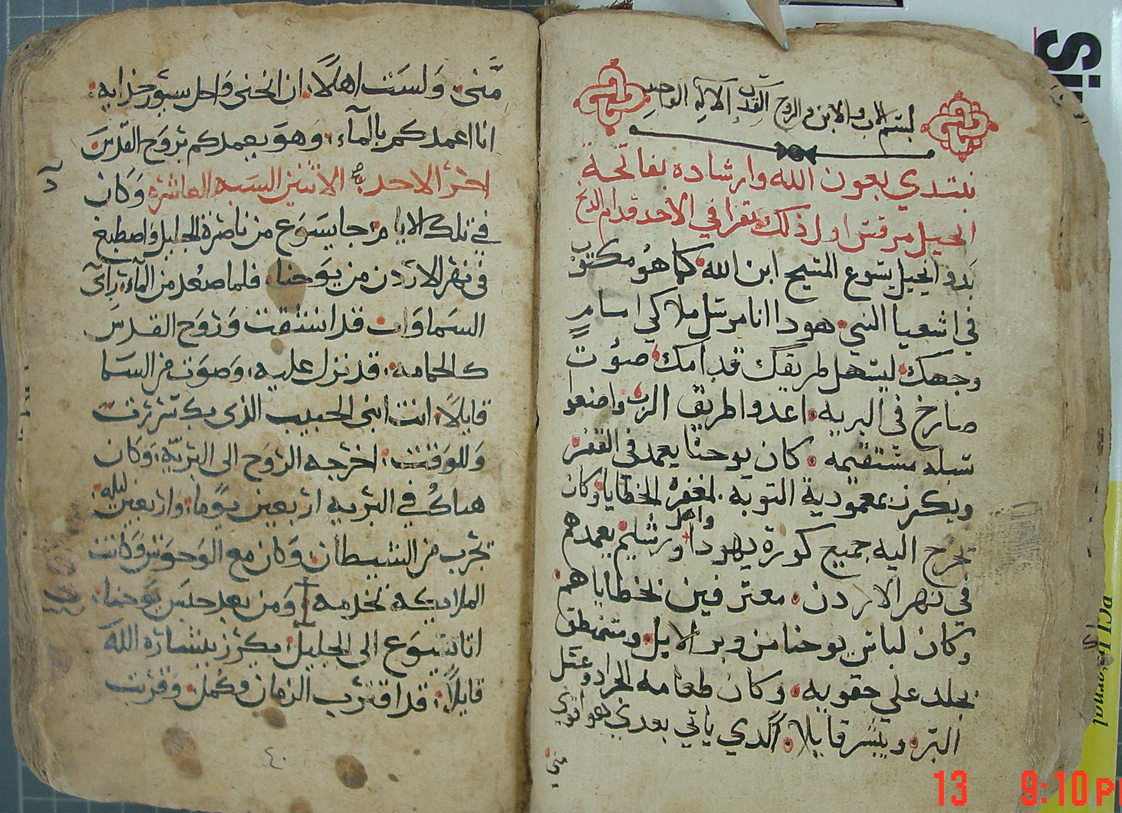 بسم الاب والابن والروح القدس الاله الواحد
نبتدي بعون الله وارشاده بفاتحة
انجيل مرقس اول ذلك يقرا في الاحد قدام الدنح
بدو انجيل يسوع المسيح ابن الله كما هو مكتوب
في اشعيا النبي هودا انا مرسل ملاكي امام
وجهك ليسهل طريقك قدامك صوت
صارخ في البريه اعدو اطريق الرب واصنعو
سبله مستقيمه كان يوحنا يعمد في القفر
ويكرز بمعمودية التوبه لمغفرة الخطايا وكان
يخرج اليه جميع كورة يهودا واهل يرشليم يعمدهم
في نهر الاردن معترفين بخطاياهم
وكان لباس يوحنا من وبر الابل ومتمنطق
بجلد علي حقويه وكان طعامه الجراد وعسل
البر ويبشر قايلا الدي ياتي بعدي هو اقوي
مني
مني ولست اهلا ان انحني واحل سيور حذايه
انا اعمدكم بالمآء وهو يعمدكم بروح القدس
اخر الاحد الاثنين السبه العاشره وكان
في تلك الايام جا يسوع من ناصرة الجليل واصطبغ
في نهر الاردن من يوحنا فلما صعد من المآء راى
السماوات قد انشقت وروح القدس
كالحمامه قد نزل عليه وصوت من السما
قايلا انت ابني الحبيب الذى بك سررت
وللوقت اخرجه الروح الى البريه وكان
هناك في البريه اربعين يوما واربعين ليله
يجرب من الشيطان وكان مع الوحوش وكانت
الملايكه تخدمه ومن بعد حبس يوحنا
اتا يسوع الى الجليل يكرز ببشارة الله
قايلا قد اقترب الزمان وكمل وقربت
٤٠
13 9:10 PM